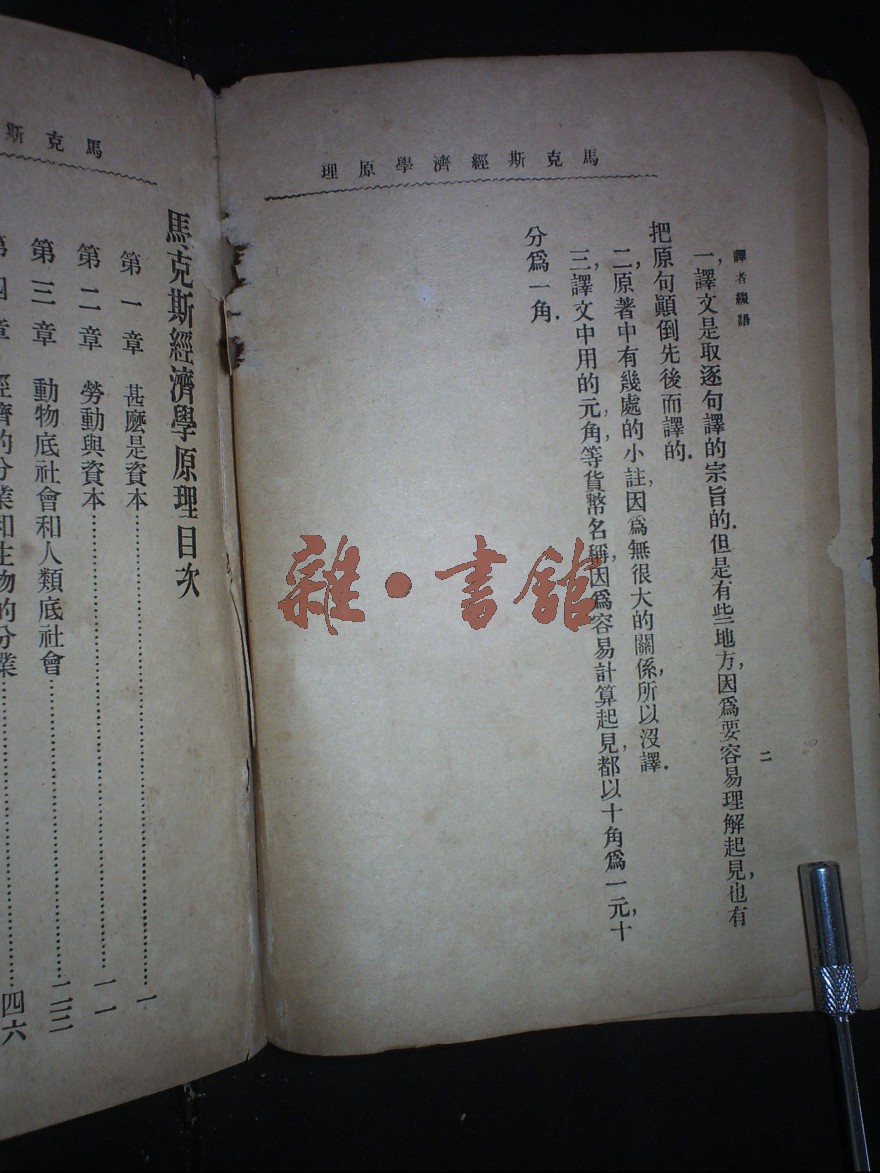 馬克斯經濟學原理
譯者綴語
二
一，譯文是取逐句譯的宗旨的．但是有些地方，因爲要容易理解起見，也有
把原句顚倒先後而譯的．
二，原著中有幾處的小註，因爲無很大的關係，所以沒譯．
三，譯文中用的元，角，等貨幣名稱，因爲容易計算起見，都以十角爲一元，十
分爲一角．
馬克斯
馬克斯經濟學原理目次
第一章 甚麼是資本……一
第二章 勞動與資本……一一
第三章 動物底社會和人類底社會……二三
第四章 經濟的分業和生物的分業……四六
雜·書館